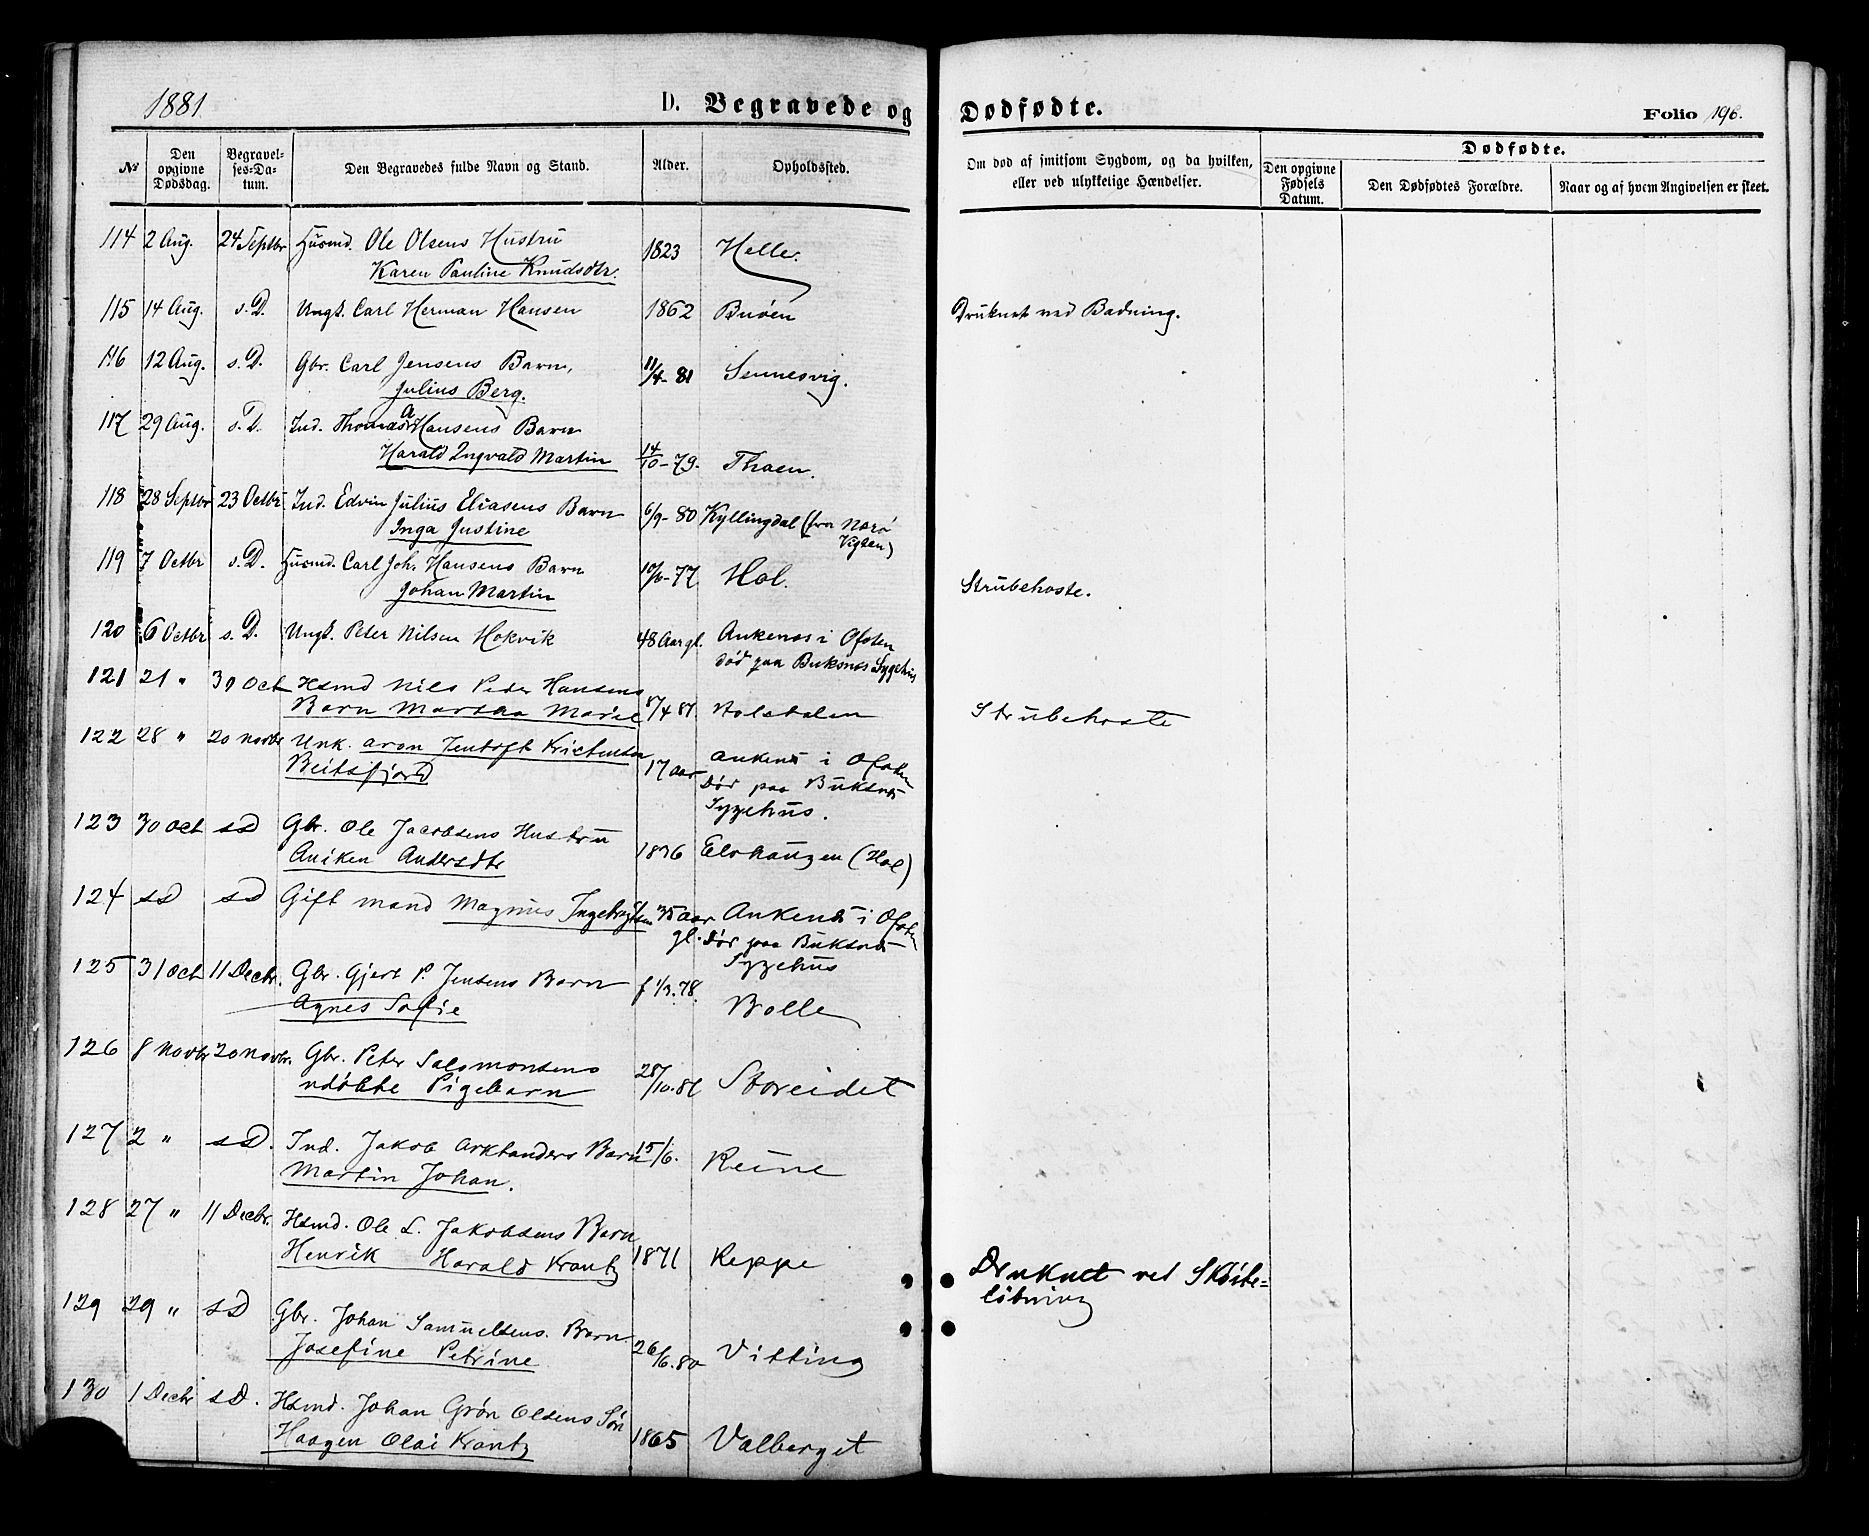 1881.
D. Begravede og Dødfødte.
Folio 196.
№
Den opgivne Dødsdag.
Begravelses-Datum.
Den Begravedes fulde Navn og Stand.
Alder.
Opholdssted.
Om død af smitsom Sygdom, og da hvilken, eller ved ulykkelige Hændelser.
Dødfødte.
Den opgivne Fødsels Datum.
Den Dødfødtes Forældre.
Naar og af hvem Angivelsen er skeet.
114 2 Aug. 24 Septbr Husmd. Ole Olsens Hustru 1823 Helle.
Karen Pauline Knudsdtr.
115 14 Aug. s.D. Ungk. Carl Herman Hansen 1862 Buøen Druknet ved Badning.
116 12 Aug. s.D. Gbr. Carl Jensens Barn, 11/4-81 Sennesvig.
Julius Berg.
117 29 Aug. s.D. Ind. Thomas Hansens Barn
Harald Ingvald Martin 14/10-79. Thoen.
118 28 Septbr 23 Octbr Ind. Edvin Julius Eliasens Barn 6/9-80 Kyllingdal (fra Narø
Inga Justine Vigten)
119 7 Octbr s.D. Husmd. Carl Joh. Hansens Barn 77 Hol. Strubehoste.
Johan Martin
120 6 Octbr s.D. Ungk. Peter Nilsen Hokvik 48 Aar gl. Ankenæs i Ofoten
død paa Buksnæs Sygehus
121 21 " 30 Oct Hsmd Nils Peder Hansens
Barn Martha Marie /4 81 Strubehoste
122 28 " 20 Novbr Unk. Aron Jentoft Kristensen
Beitsfjord 17 aar Ankenæs i Ofoten
Dør paa Buksnæs
Sygehus.
123 30 Oct sd Gbr. Ole Jacobsens Hustru
Aniken Andersdtr 1836 Elvhaugen (Hol)
124 sd sd Gift mand Magnus Ingebrigtsen 35 aar gl. Ankenæs i Ofoten
Dør paa Buksnæs
Sygehus
125 31 Oct 11 Decbr. Gbr. Gjert P. Jensens Barn f 1/3.78. Bolle
Agnes Sofie
126 8 Novbr 20 Novbr. Gbr. Peter Salomonsens 28/10.81 Storeidet
udøbte Pigebarn
127 2 " sD. Ind. Jakob Arktanders Barn 15/6. Reine
Martin Johan.
128 27 " 11 Decbr. Hsmd. Ole L. Jakobsens Barn
Henrik Harald Krantz 1871 Reppe Druknet ved Skøite-
løbning
129 29 " sD Gbr. Johan Samuelsens Barn.
Josefine Petrine 26/6.80 Vitting
130 1 Decbr sD. Hsmd. Johan Grøn Olsens Søn
Haagen Olai Krantz 1865 Valberget